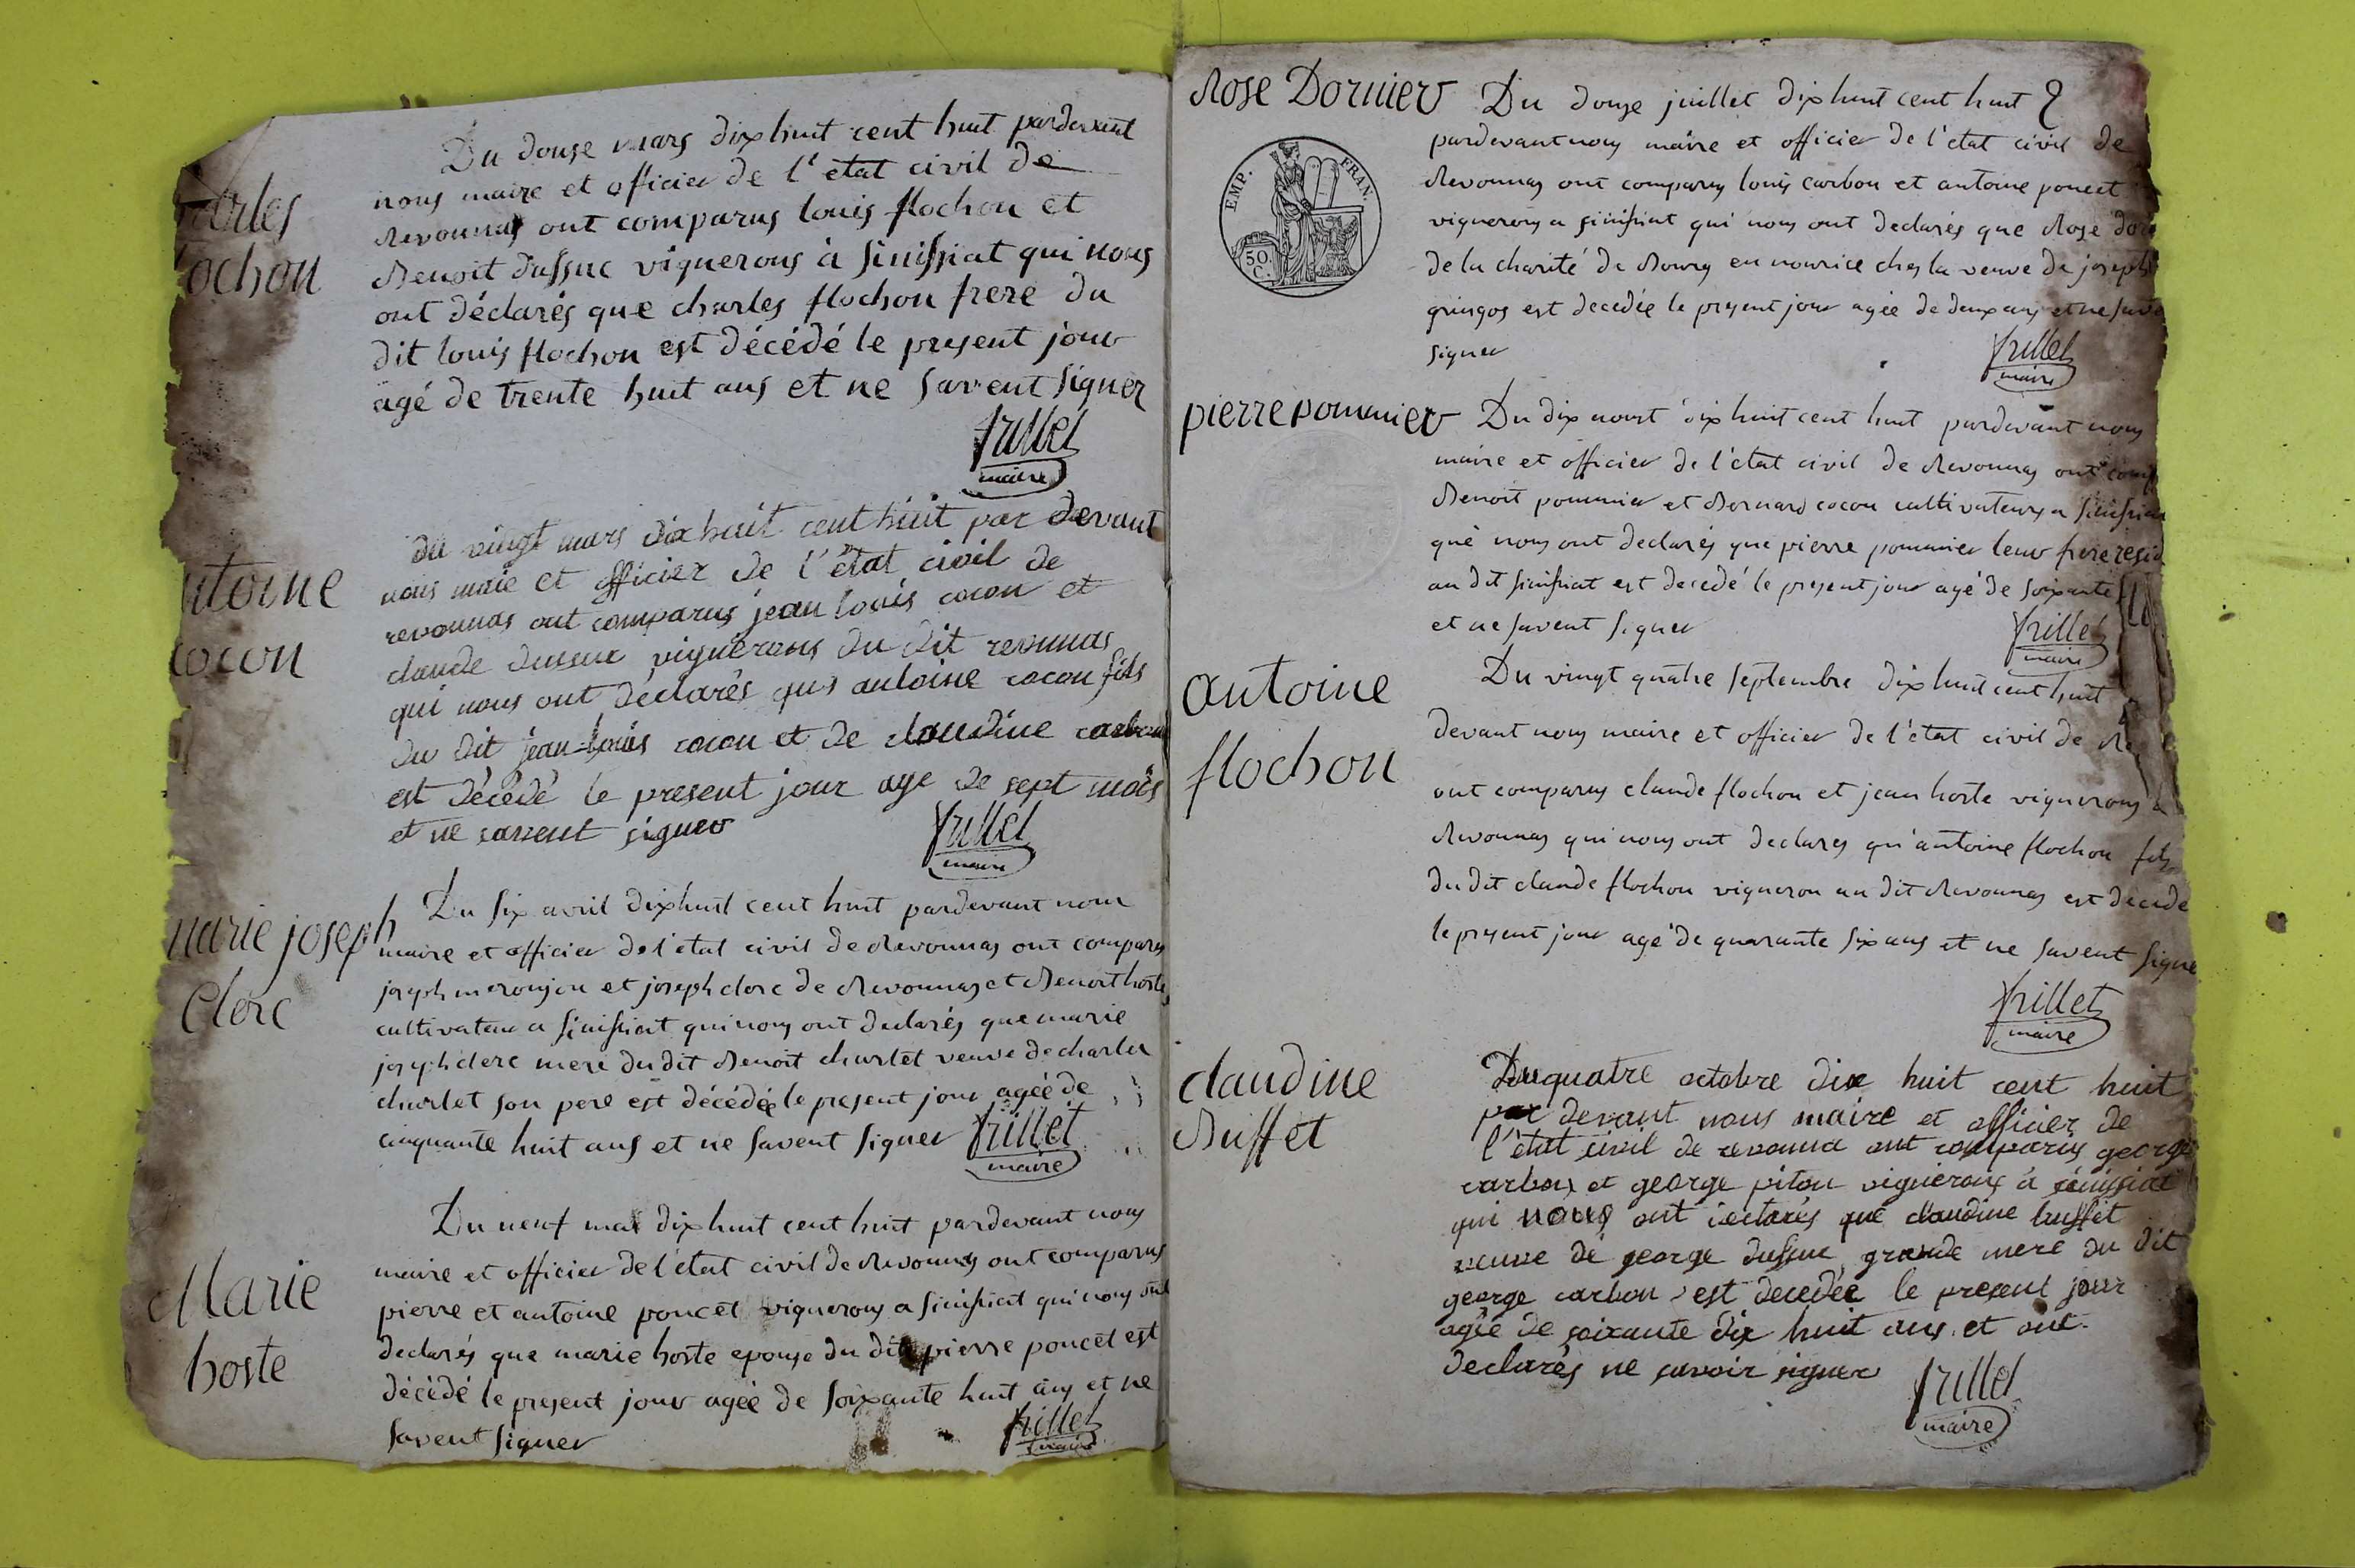 arles
ochon
Du douze mars dix huit cent huit pardevant
nous maire et officier de l'état civil de
Revonnas ont comparus louis flochon et
Benoit dussuc vignerons à sinissiat qui nous
ont déclarés que charles flochon frere du
dit louis flochon est décédé le present jour
agé de trente huit ans et ne savent signer
frillet
maire
ntoine
cocon
du vingt mars dix huit cent huit par devant
nous maie et officier de l'état civil de
revonnas ont comparus jean louis cocon et
claude dussuc vignerons du dit revonnas
qui nous ont déclarés que antoine cocon fils
du dit jean louis cocon et de claudine carbon
est décédé le present jour age de sept mois
et ne savent signer
frillet
maire
marie joseph
Clerc
Du six avril dix huit cent huit pardevant nous
maire et officier de l'état civil de Revonnas ont comparus
joseph et joseph clerc de Revonnas et Benoit
cultivateur a sinissiat qui nous ont declarés que marie
joseph clerc mere du dit Benoit charlet veuve de charles
charlet son pere est décédée le present jour agée de
cinquante huit ans et ne savent signer
frillet
maire
Marie
hoste
Du neuf mai dix huit cent huit pardevant nous
maire et officier de l'état civil de Revonnas ont comparus
pierre et antoine poncet vignerons a sinissiat qui nous ont
declarés que marie hoste epouse du dit pierre poncet est
décédé le present jour agée de soixante huit ans et ne
savent signer
frillet
maire
Rose Dornier
EMP. FRAN.
50. C.
Du douze juillet dix huit cent huit
pardevant nous maire et officier de l'état civil de
Revonnas ont comparus louis carbon et antoine poncet
vignerons a sinissiat qui nous ont declarés que Rose
de la charité de Bourg en nourice ches la veuve de joseph
gringos est decedée le present jour agée de deux ans et ne
signer
frillet
maire
pierre pommier
Du dix aoust dix huit cent huit pardevant nous
maire et officier de l'état civil de Revonnas ont comp
Benoit pommier et Bernard cocon cultivateurs a sinissiat
qui nous ont declarés que pierre pommier leur frere resid
au dit sinissiat est decedé le present jour agé de soixante
et ne savent signer
frillet
maire
antoine
flochon
Du vingt quatre septembre dix huit cent huit
devant nous maire et officier de l'état civil de Re
ont comparus claude flochon et jean hoste vignerons a
Revonnas qui nous ont declares qu'antoine flochon fils
du dit claude flochon vigneron au dit Revonnas est decede
le present jour agé de quarante six ans et ne savent signe
frillet
maire
claudine
Buffet
Du quatre octobre dix huit cent huit
par devant nous maire et officier de
l'état civil de revonna ont comparus george
carbon et george piton vignerons à sinissiat
qui nous ont declarés que claudine buffet
veuve de george dussuc grande mere du dit
george carbon est decedée le present jour
agée de soixante dix huit ans et ont
declarés ne savoir signer
frillet
maire